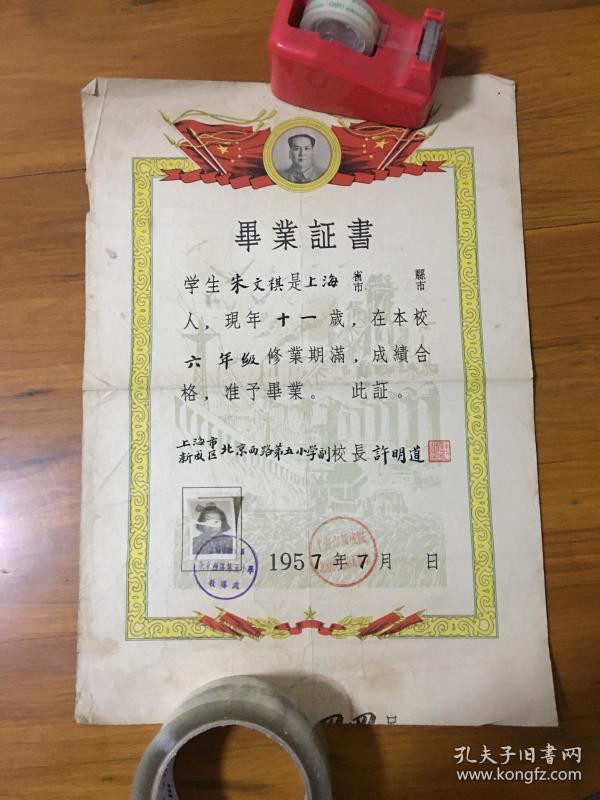 畢業証書
学生 朱文祺 是 上海 省市 縣市
人，現年 十一 歲，在本校
六年級 修業期滿，成績合
格，准予畢業。 此証。
上海市
新成区 北京西路第五小学副校長 許明道
北京西路第五小學
教導處
1957年7月 日
孔夫子旧书网
www.kongfz.com